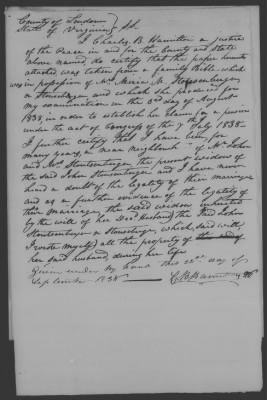 County of Loudoun
State of Virginia } Sct.
I Charles B. Hamilton a justice
of the Peace in and for the County and State
above named, do certify that the paper hereto
attached was taken from a family Bible which
is in possession of Mrs
or Stonebunger and which she produced for
my examination on the 3rd day of August
1838, in order to establish her claim for a pension
under the act of Congress of the 7th July 1838—
I further certify that I have been for
many years, a near neighbour of Mr John
and Mrs the present widow of
the said John and I have never
heard a doubt of the legality of their marriage
and as a further evidence of the legality of
their marriage, the said widow inherited
by the will of her Decd Husband, the said John
or which, said will,
I wrote myself) all the property of
her said husband, during her life
Given under my hand this 22nd day of
September 1838
C B Hamilton